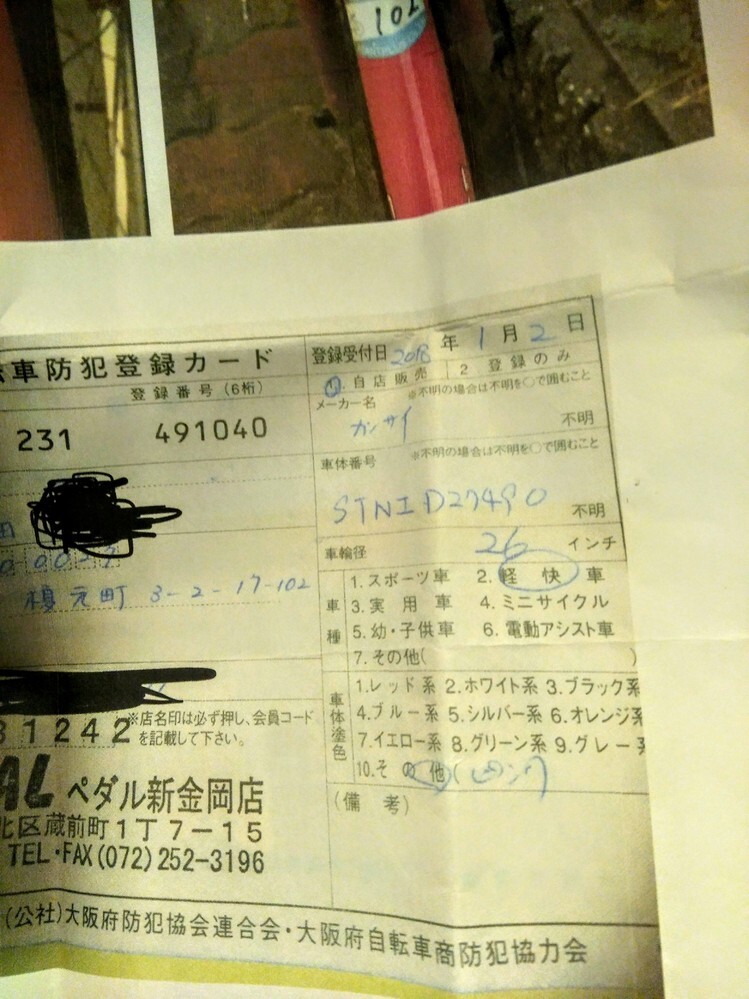 102
車防犯登録カード
登録受付日 2018 年 1 月 2 日
登録番号(6桁)
1 自店販売 2 登録のみ
231 491040
※不明の場合は不明を○で囲むこと
メーカー名
カンサイ 不明
車体番号 ※不明の場合は不明を○で囲むこと
STNID27490 不明
田
車輪径 26 インチ
榎元町 3-2-17-102
車種
1.スポーツ車 2.軽快車
3.実用車 4.ミニサイクル
5.幼・子供車 6.電動アシスト車
7.その他( )
車体塗色
1.レッド系 2.ホワイト系 3.ブラック系
4.ブルー系 5.シルバー系 6.オレンジ系
7.イエロー系 8.グリーン系 9.グレー系
10.その他(ピンク
(備考)
31242
※店名印は必ず押し、会員コード
を記載して下さい。
AL ペダル新金岡店
北区蔵前町1丁7-15
TEL・FAX(072)252-3196
(公社)大阪府防犯協会連合会・大阪府自転車商防犯協力会